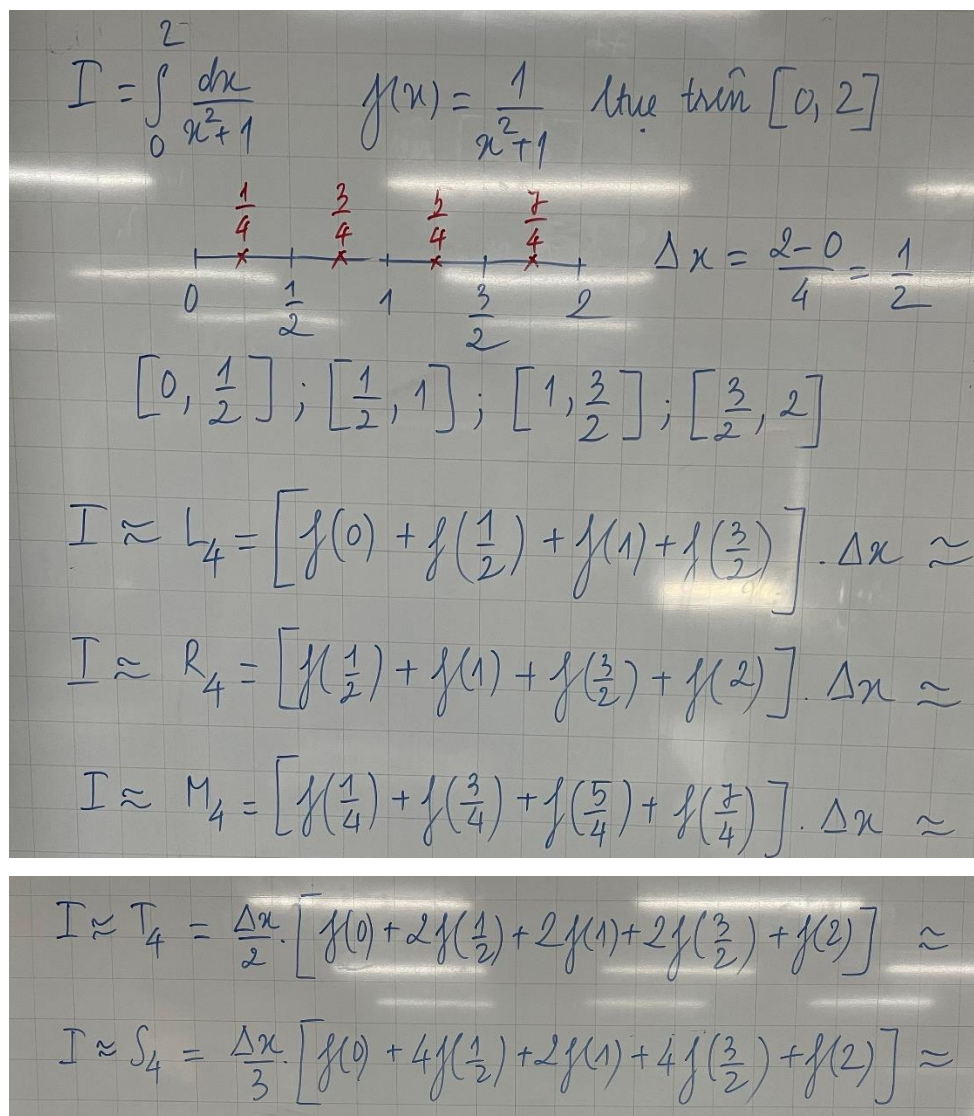 I = ∫₀² dx/(x²+1) f(x) = 1/(x²+1) ltục trên [0, 2]
1/4 3/4 5/4 7/4
0 1/2 1 3/2 2 Δx = (2-0)/4 = 1/2
[0, 1/2] ; [1/2, 1] ; [1, 3/2] ; [3/2, 2]
I ≈ L₄ = [f(0) + f(1/2) + f(1) + f(3/2)] . Δx ≈
I ≈ R₄ = [f(1/2) + f(1) + f(3/2) + f(2)] . Δx ≈
I ≈ M₄ = [f(1/4) + f(3/4) + f(5/4) + f(7/4)] . Δx ≈
I ≈ T₄ = Δx/2 . [f(0) + 2f(1/2) + 2f(1) + 2f(3/2) + f(2)] ≈
I ≈ S₄ = Δx/3 . [f(0) + 4f(1/2) + 2f(1) + 4f(3/2) + f(2)] ≈